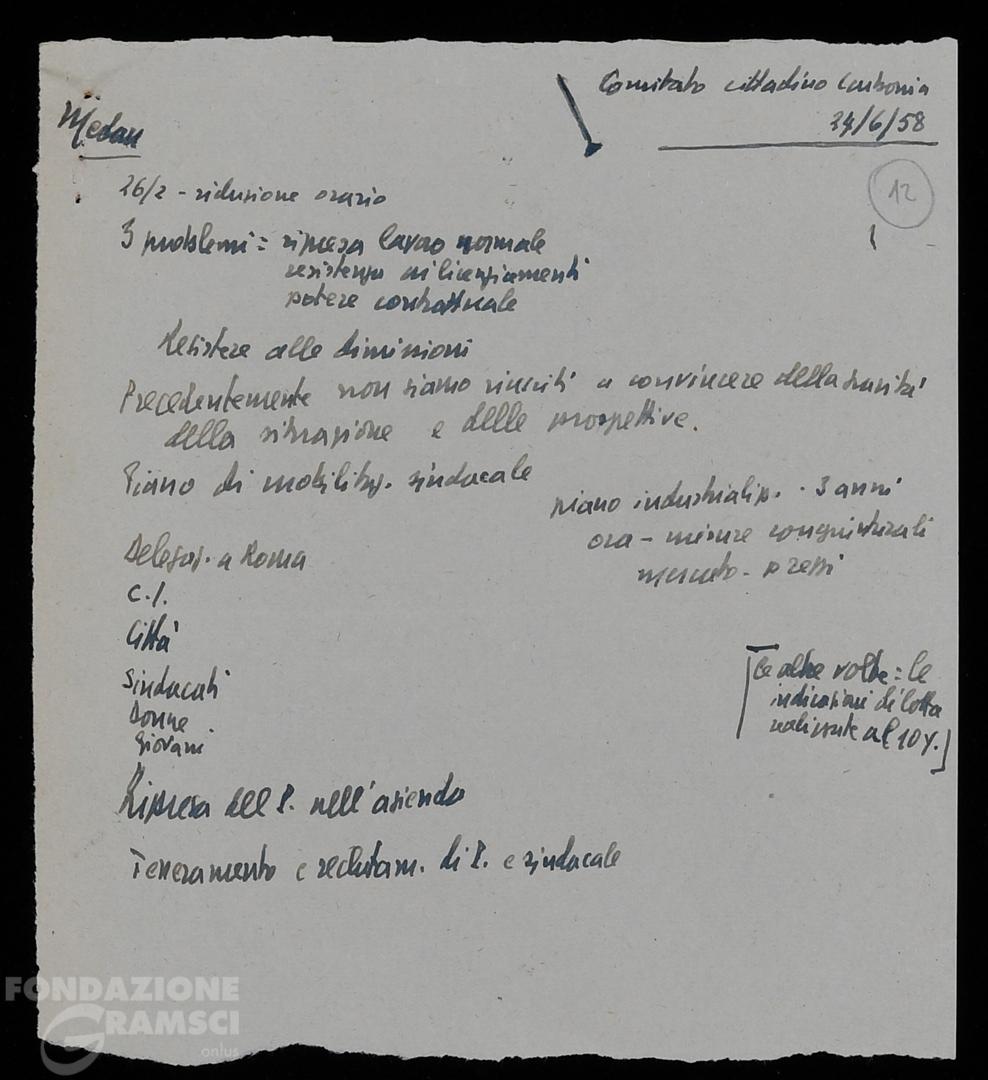 Comitato cittadino Carbonia
24/6/58
12
26/2 - riduzione orario
3 problemi = ripresa lavoro normale
resistenza ai licenziamenti
potere contrattuale
Resistere alle dimissioni
Precedentemente non siamo riusciti a convincere della
della situazione e delle prospettive.
Piano di mobilitaz. sindacale
piano industrializ. - 3 anni
ora - misure congiunturali
mercato - prezzi
Delegaz. a Roma
C.I.
Città
Sindacati
Donne
Giovani
[Le altre volte = le
indicazioni di lotta
realizzate al 10%.]
Ripresa del P. nell'azienda
Tesseramento e reclutam. di P. e sindacale
FONDAZIONE
GRAMSCI
onlus